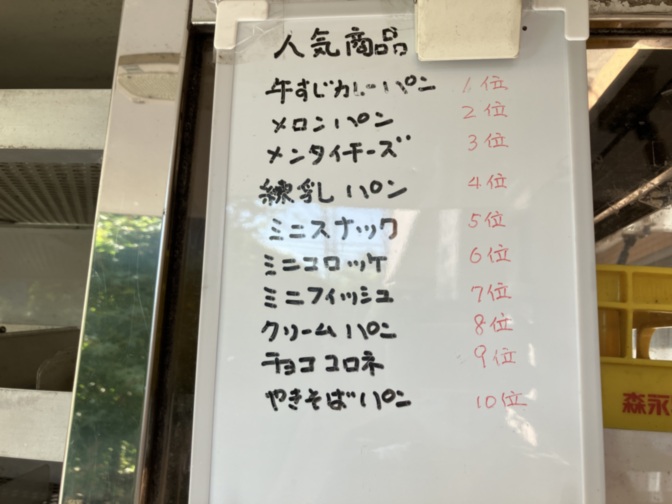 人気商品
牛すじカレーパン 1位
メロンパン 2位
メンタイチーズ 3位
練乳パン 4位
ミニスナック 5位
ミニコロッケ 6位
ミニフィッシュ 7位
クリームパン 8位
チョココロネ 9位
やきそばパン 10位
森永